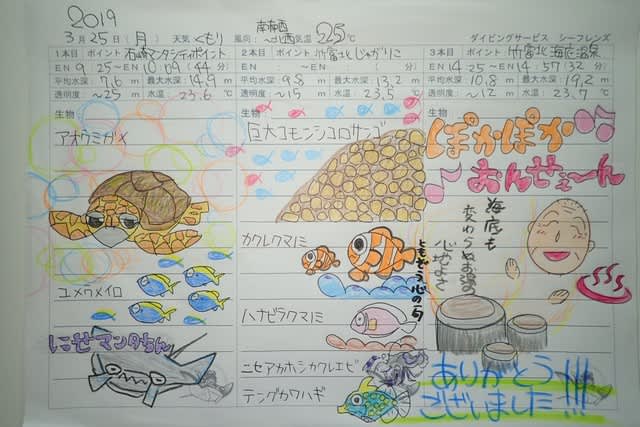 2019
3月25日(月) 天気 くもり 風向: 南南西〜北西 気温 25℃ ダイビングサービス シーフレンズ
1本目 ポイント 石崎マンタシティポイント
EN 9:25〜EN 10:09(44分)
平均水深: 7.6m 最大水深: 14.9m
透明度: 〜25m 水温: 23.6℃
生物
アオウミガメ
ユメウメイロ
にせマンタちん
2本目 ポイント 竹富北じゃがりこ
平均水深: 9.8m 最大水深: 13.2m
透明度: 〜15m 水温: 23.5℃
生物
巨大コモンシコロサンゴ
カクレクマノミ
ハナビラクマノミ
ニセアカホシカクレエビ
テングカワハギ
3本目 ポイント 竹富北海底温泉
EN 14:25〜EN 14:57(32分)
平均水深: 10.8m 最大水深: 19.2m
透明度: 〜12m 水温: 23.7℃
生物
ぽかぽか
おんせぇ〜ん
海底も
変わらぬお湯の
心地よさ
心の一句
ありがとう
ございました!!!